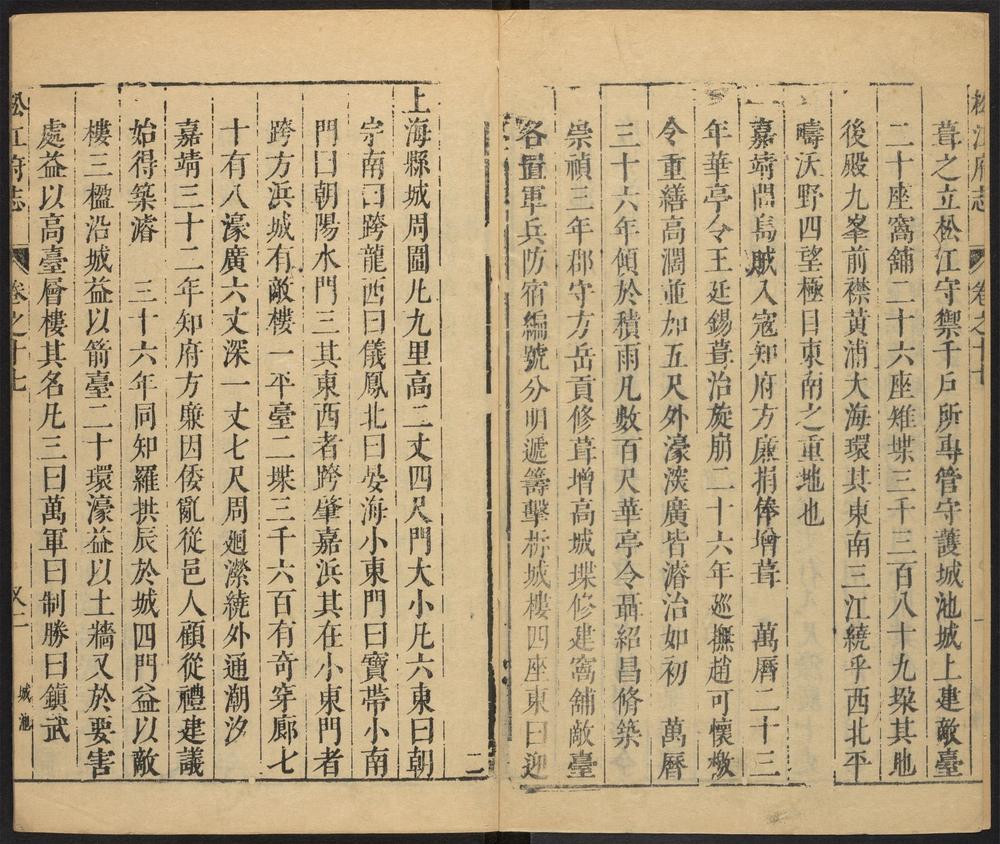 松江府志
卷之十七
葺之立松江守禦千戶所專管守護城池城上建敵臺
二十座窩舖二十六座雉堞三千三百八十九垜其地
後殿九峯前襟黃浦大海環其東南三江繞乎西北平
疇沃野四望極目東南之重地也
嘉靖間島賊入寇知府方廉捐俸增葺　萬曆二十三
年華亭令王廷錫葺治旋崩二十六年廵撫趙可懷檄
令重繕高濶並加五尺外濠淺廣皆濬治如初　萬曆
三十六年傾於積雨凡數百尺華亭令聶紹昌脩築
崇禎三年郡守方岳貢修葺增高城堞修建窩舖敵臺
各置軍兵防宿編號分明遞籌擊柝城樓四座東曰迎
二
上海縣城周圍凡九里高二丈四尺門大小凡六東曰朝
宗南曰跨龍西曰儀鳳北曰晏海小東門曰寶帶小南
門曰朝陽水門三其東西者跨肇嘉浜其在小東門者
跨方浜城有敵樓一平臺二堞三千六百有奇穿廊七
十有八濠廣六丈深一丈七尺周廻瀠繞外通潮汐
嘉靖三十二年知府方廉因倭亂從邑人顧從禮建議
始得築濬　三十六年同知羅拱辰於城四門益以敵
樓三楹沿城益以箭臺二十環濠益以土牆又於要害
處益以高臺層樓其名凡三曰萬軍曰制勝曰鎮武
松江府志
卷之十七
又二
城池